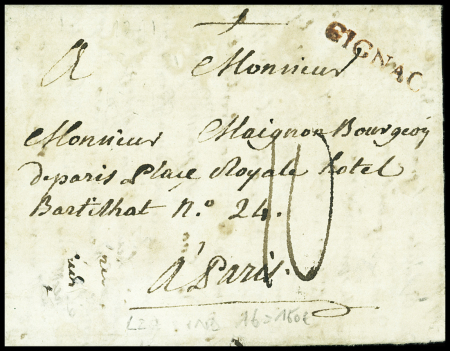 GIGNAC
A Monsieur
Monsieur Maignon Bourgeois
de paris place Royale hotel
Bartilhat N.o 24.
10
A Paris.